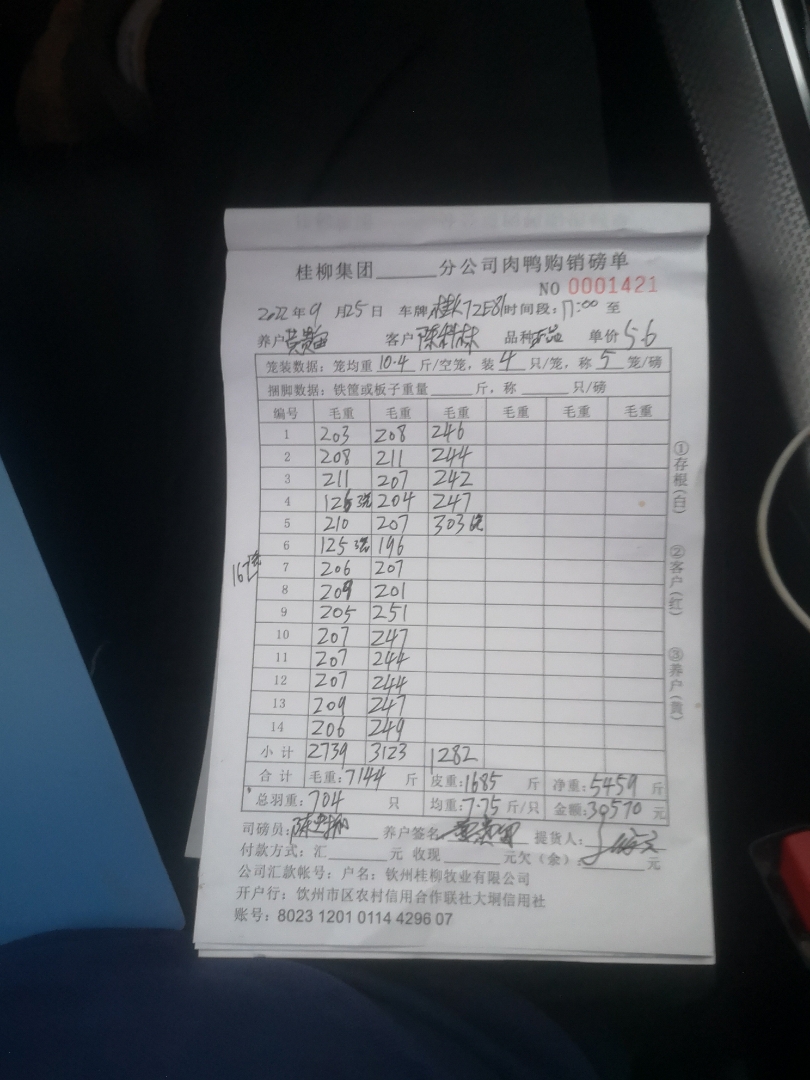 桂柳集团______分公司肉鸭购销磅单
NO 0001421
2022年9月25日 车牌 桂K72E81 时间段：17:00 至
养户 客户 陈科林 品种 单价 5.6
笼装数据：笼均重 10.4 斤/空笼，装 4 只/笼，称 5 笼/磅
捆脚数据：铁筐或板子重量______斤，称______只/磅
编号 毛重 毛重 毛重 毛重 毛重 毛重
1 203 208 246
2 208 211 244
3 211 207 242
4 126 3笼 204 247
5 210 207 303
6 125 3笼 196
7 206 207
8 209 201
9 205 251
10 207 247
11 207 244
12 207 244
13 209 247
14 206 249
小计 2739 3123 1282
合计 毛重：7144 斤 皮重：1685 斤 净重：5459 斤
总羽重：704 只 均重：7.75 斤/只 金额：30570 元
司磅员： 养户签名 提货人：
付款方式：汇______元 收现______元欠（余）：______元
公司汇款帐号：户名：钦州桂柳牧业有限公司
开户行：钦州市区农村信用合作联社大垌信用社
账号：8023 1201 0114 4296 07
①存根(白)
②客户(红)
③养户(黄)